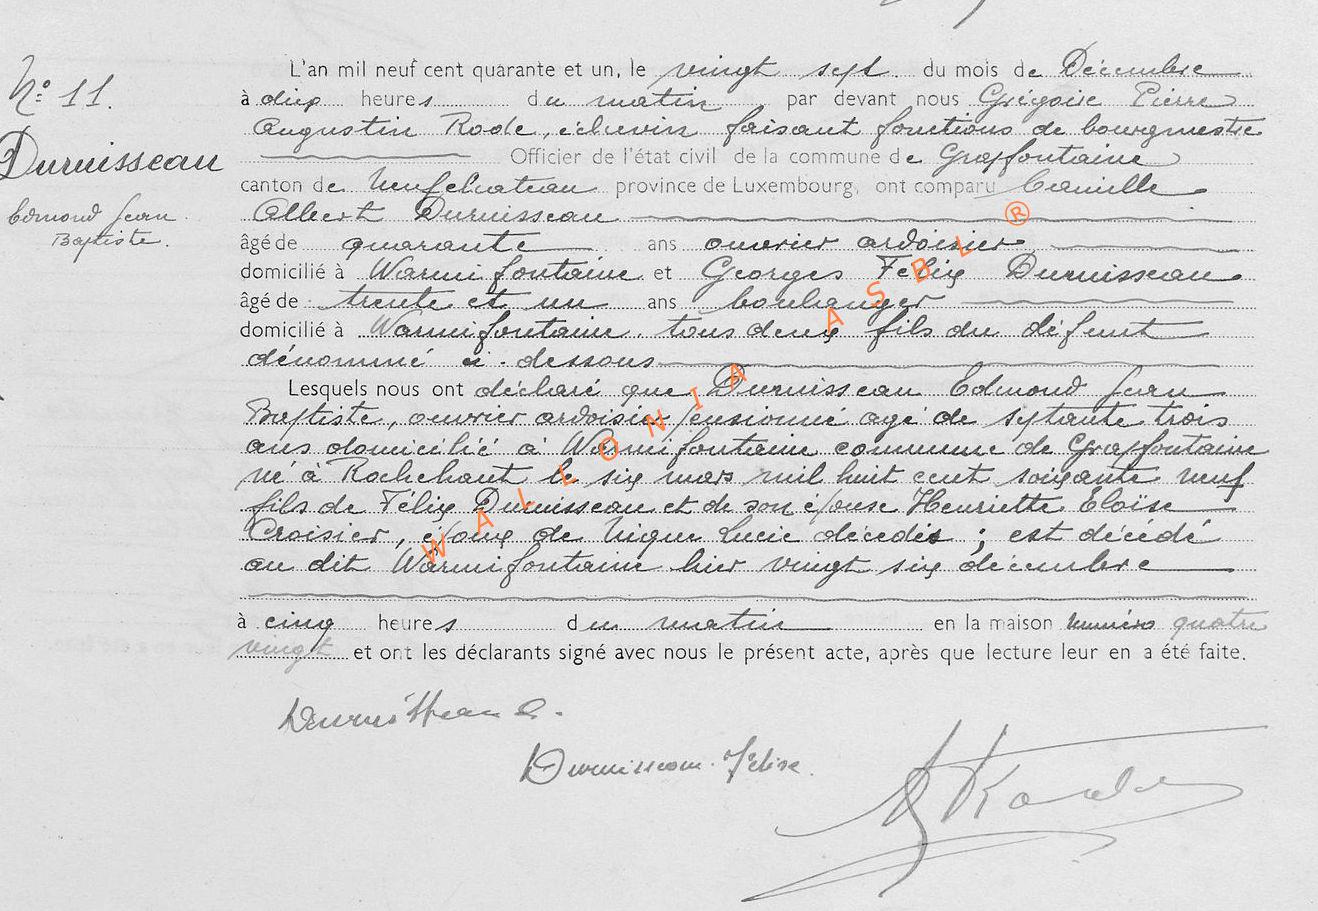 L'an mil neuf cent quarante et un, le vingt sept du mois de Décembre
N° 11.
à dix heures du matin par devant nous Grégoire Pierre
Augustin Rode, échevin faisant fonctions de bourgmestre
Durnisseau
Officier de l'état civil de la commune de Grapfontaine
canton de Neufchateau province de Luxembourg, ont comparu Camille
Edmond Jean
Baptiste.
Albert Durnisseau
âgé de quarante ans ouvrier ardoisier
domicilié à Warmifontaine et Georges Felix Durnisseau
âgé de trente et un ans boulanger
domicilié à Warmifontaine tous deux fils du défunt
dénommé ci-dessous
Lesquels nous ont déclaré que Durnisseau Edmond Jean
Baptiste, ouvrier ardoisier pensionné agé de septante trois
ans domicilié à Warmifontaine commune de Grapfontaine
né à Rochehaut le six mars mil huit cent soixante neuf
fils de Félix Durnisseau et de son épouse Henriette Eloïse
Croisier, époux de Lucie décédés ; est décédé
au dit Warmifontaine hier vingt six décembre
à cinq heures du matin en la maison numéro quatre
vingt et ont les déclarants signé avec nous le présent acte, après que lecture leur en a été faite.
Durnisseau C.
Durnisseau
WALLONIA ASBL ®